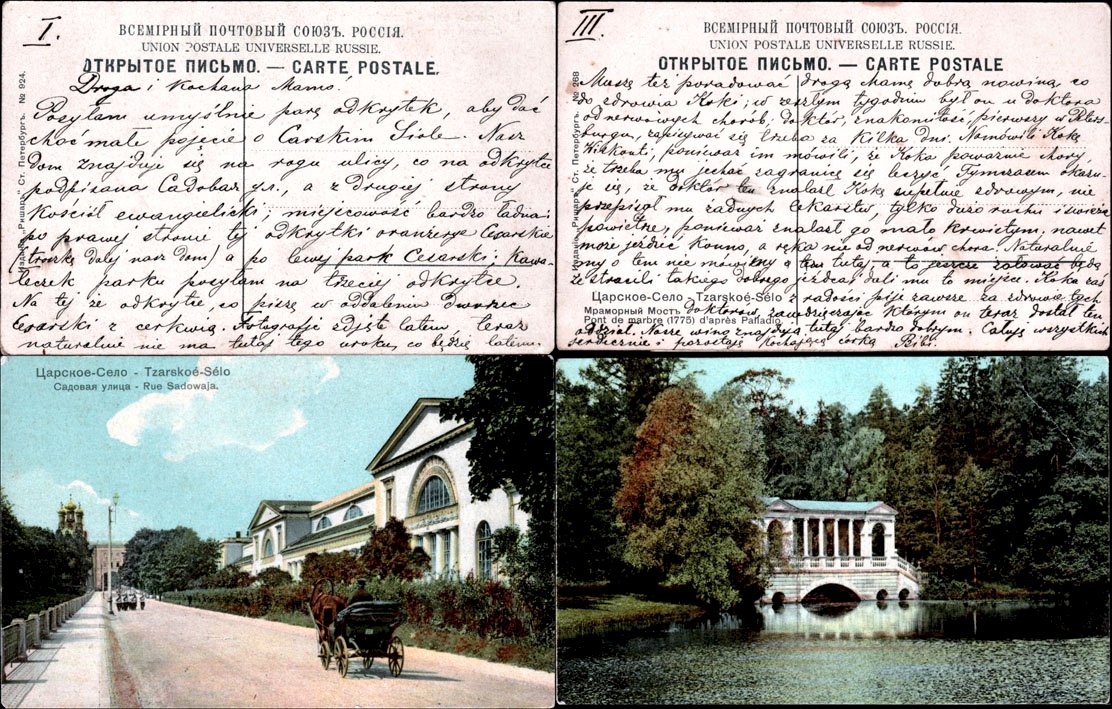 I.
ВСЕМІРНЫЙ ПОЧТОВЫЙ СОЮЗЪ. РОССІЯ.
UNION POSTALE UNIVERSELLE RUSSIE.
ОТКРЫТОЕ ПИСЬМО. — CARTE POSTALE.
Droga i Kochana Mamo.
Posyłam umyślnie parę odkrytek, aby dać
choć małe pojęcie o Carskim Siole. Nasz
dom znajduje się na rogu ulicy, co na odkrytce
podpisana Садовая ул., a z drugiej strony
Kościół ewangielicki; miejscowość bardzo ładna;
po prawej stronie tej odkrytki oranżerye Cesarskie
(troszkę dalej nasz dom) a po lewej park Cesarski. Kawa-
łeczek parku posyłam na trzeciej odkrytce.
Na tej że odkrytce, co piszę w oddaleniu Dworzec
Cesarski z cerkwią. Fotografje zdjęte latem, teraz
naturalnie nie ma tutaj tego uroku, co będzie latem.
Изданіе „Ришаръ“ Ст. Петербургъ. № 924.
III.
ВСЕМІРНЫЙ ПОЧТОВЫЙ СОЮЗЪ. РОССІЯ.
UNION POSTALE UNIVERSELLE RUSSIE.
ОТКРЫТОЕ ПИСЬМО. — CARTE POSTALE
Muszę też poradować drogą mamę dobrą nowiną, co
do zdrowia Koki; w zeszłym tygodniu był on u doktora
od nerwowych chorób, doktór, znakomitość, pierwszy w Peters-
burgu, zapisywać się trzeba za kilka dni. Namówili Kokę
ponieważ im mówili, że Koka poważnie chory,
że trzeba mu jechać zagranicę się leczyć. Tymczasem okazu-
je się, że doktór ten znalazł Kokę zupełnie zdrowym, nie
przepisał mu żadnych lekarstw, tylko dużo ruchu i świeże
powietrze, ponieważ znalazł go mało krwistym; nawet
może jeździć konno, a ręka nie od nerwów chora. Naturalnie
my o tem nie mówimy a tem tutaj, a to jeszcze żałować będą
że stracili takiego dobrego jeźdźca i dali mu to miejsce. Koka zaś
z radości pije zawsze za zdrowie tych
doktorów, zawdzięczając którym on teraz dostał ten
oddział. Nasze wino znajdują tutaj bardzo dobrym. Całuję wszystkich
serdecznie i pozostaję kochającą córką Bibi.
Царское-Село - Tzarskoé-Sélo
Мраморный Мостъ
Pont de marbre (1775) d'après Palladio.
Изданіе „Ришаръ“ Ст. Петербургъ. № 268
Царское-Село - Tzarskoé-Sélo
Садовая улица - Rue Sadowaja.